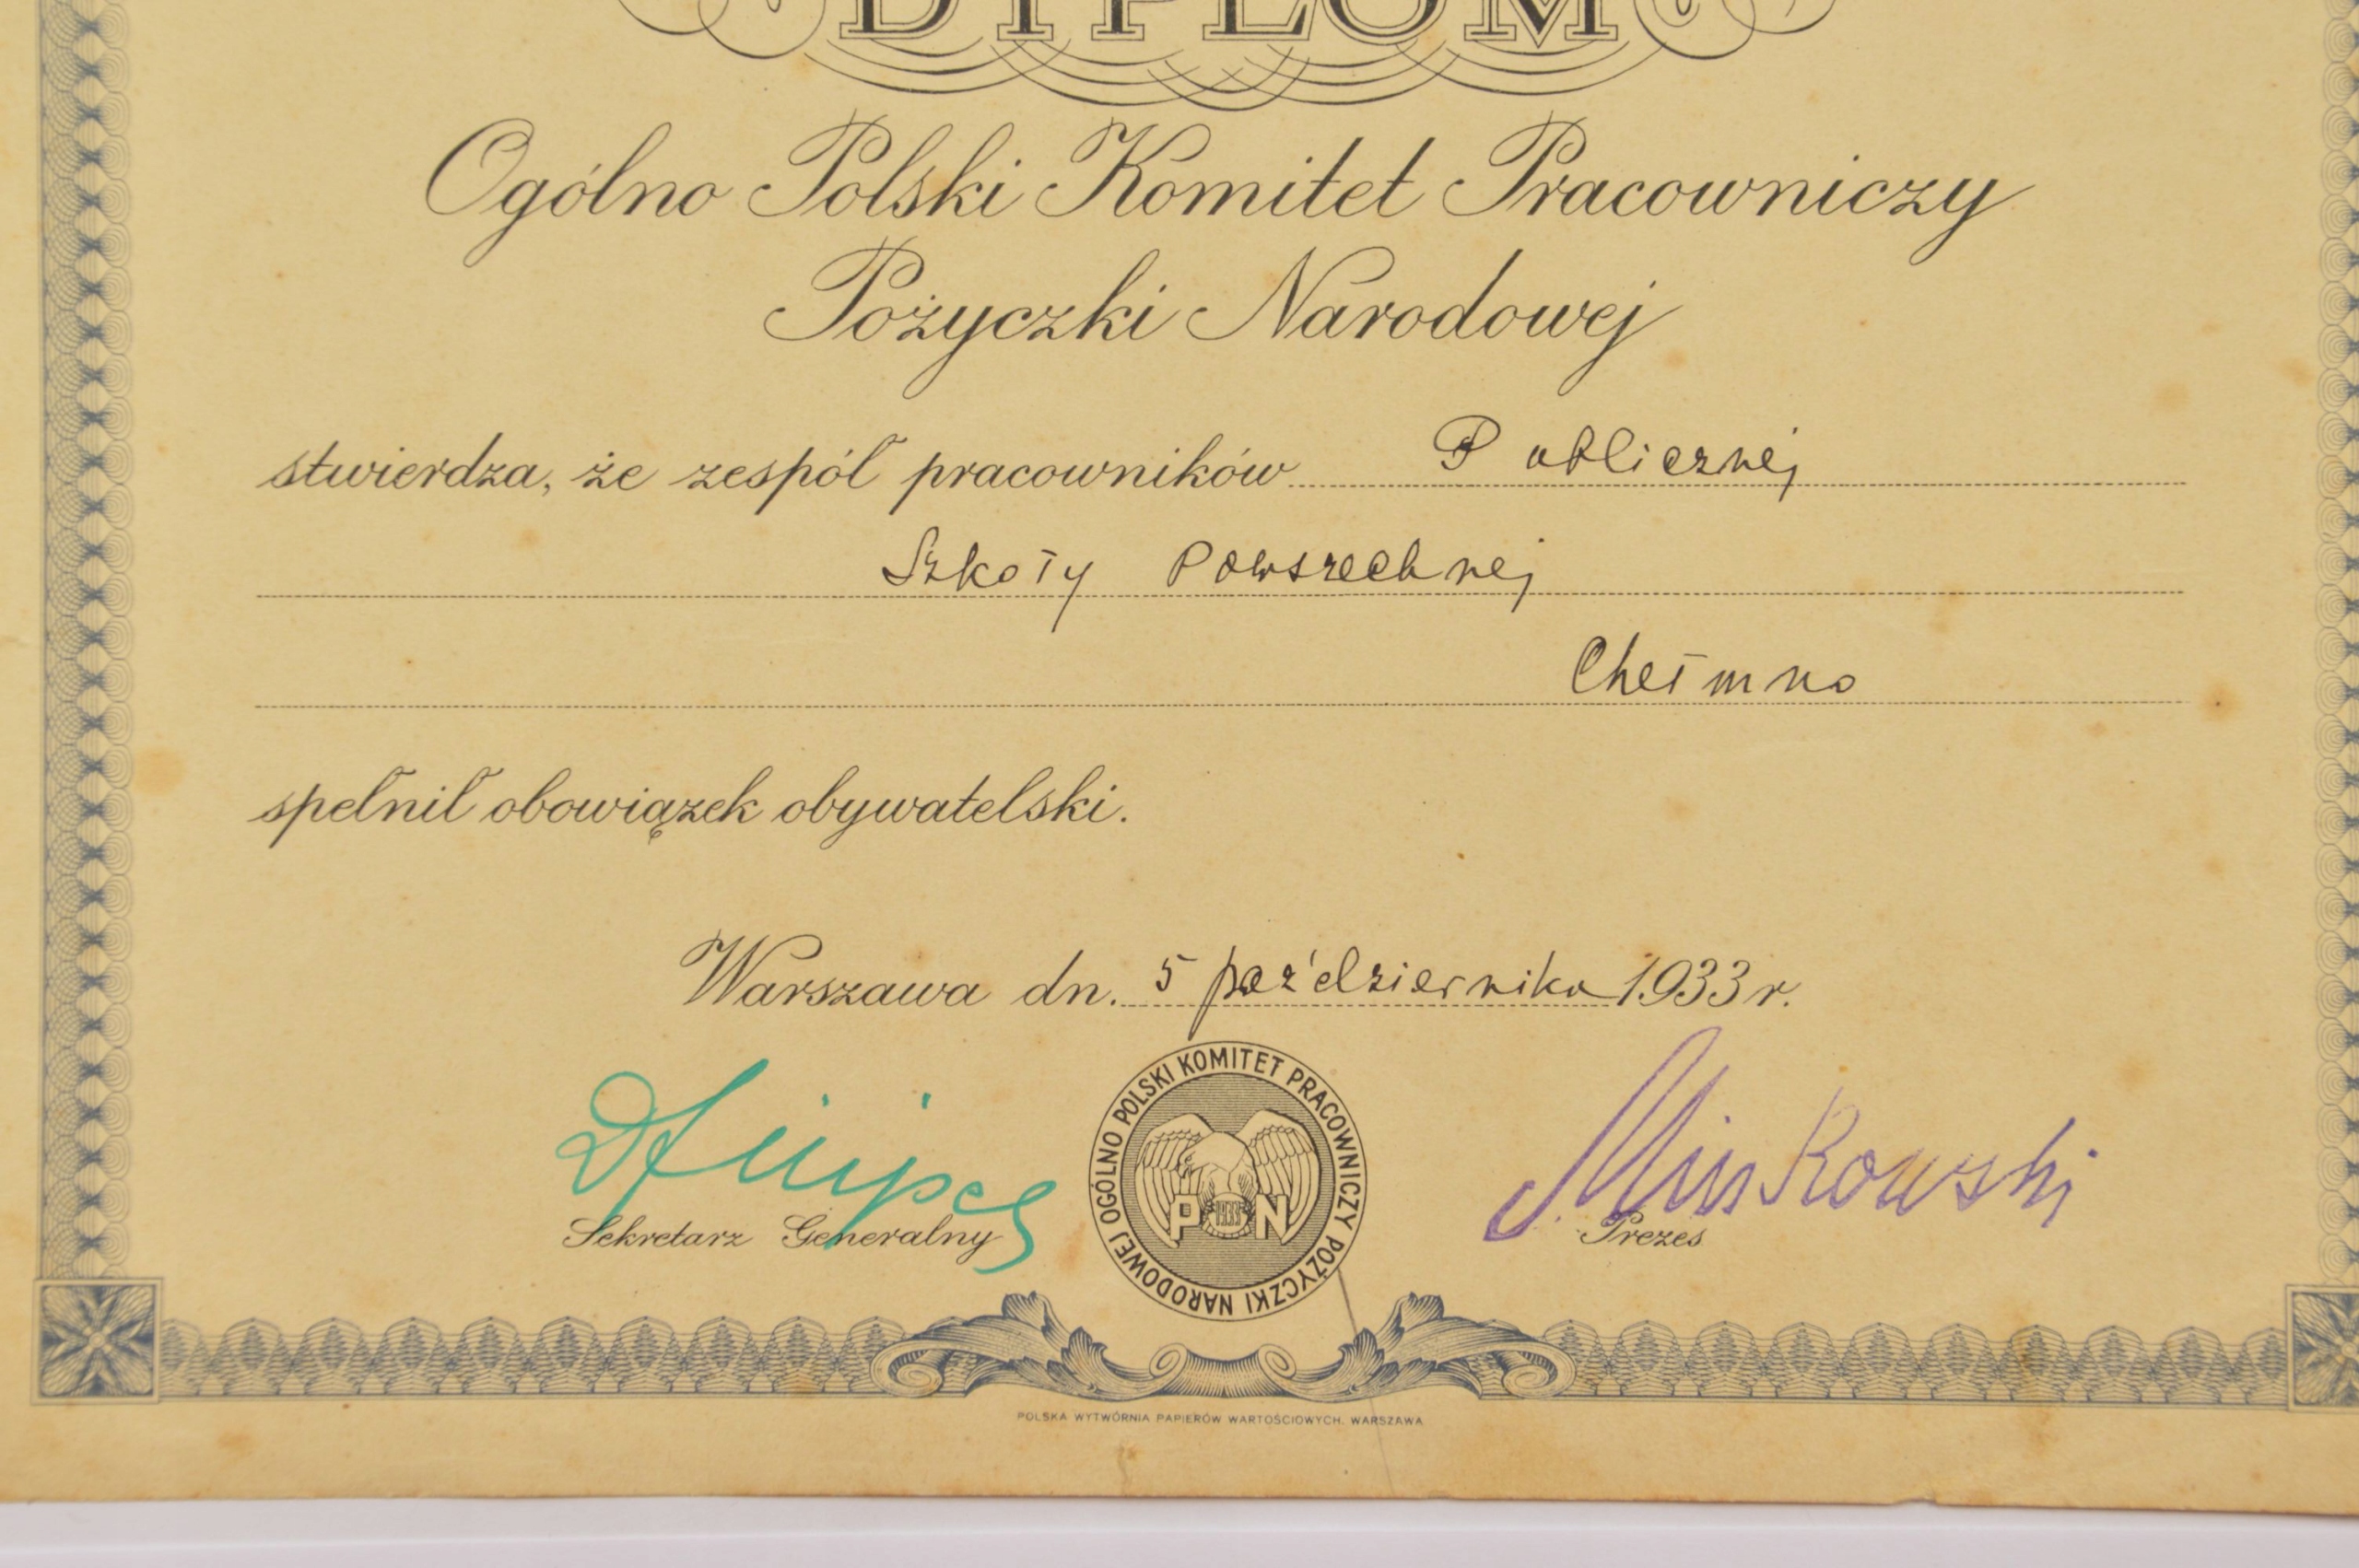 DYPLOM
Ogólno Polski Komitet Pracowniczy
Pożyczki Narodowej
stwierdza, że zespół pracowników Publicznej
Szkoły Powszechnej
Chełmno
spełnił obowiązek obywatelski.
Warszawa dn. 5 października 1933 r.
OGÓLNO POLSKI KOMITET PRACOWNICZY POŻYCZKI NARODOWEJ
P 1933 N
Minkowski
Sekretarz Generalny
Prezes
POLSKA WYTWÓRNIA PAPIERÓW WARTOŚCIOWYCH. WARSZAWA